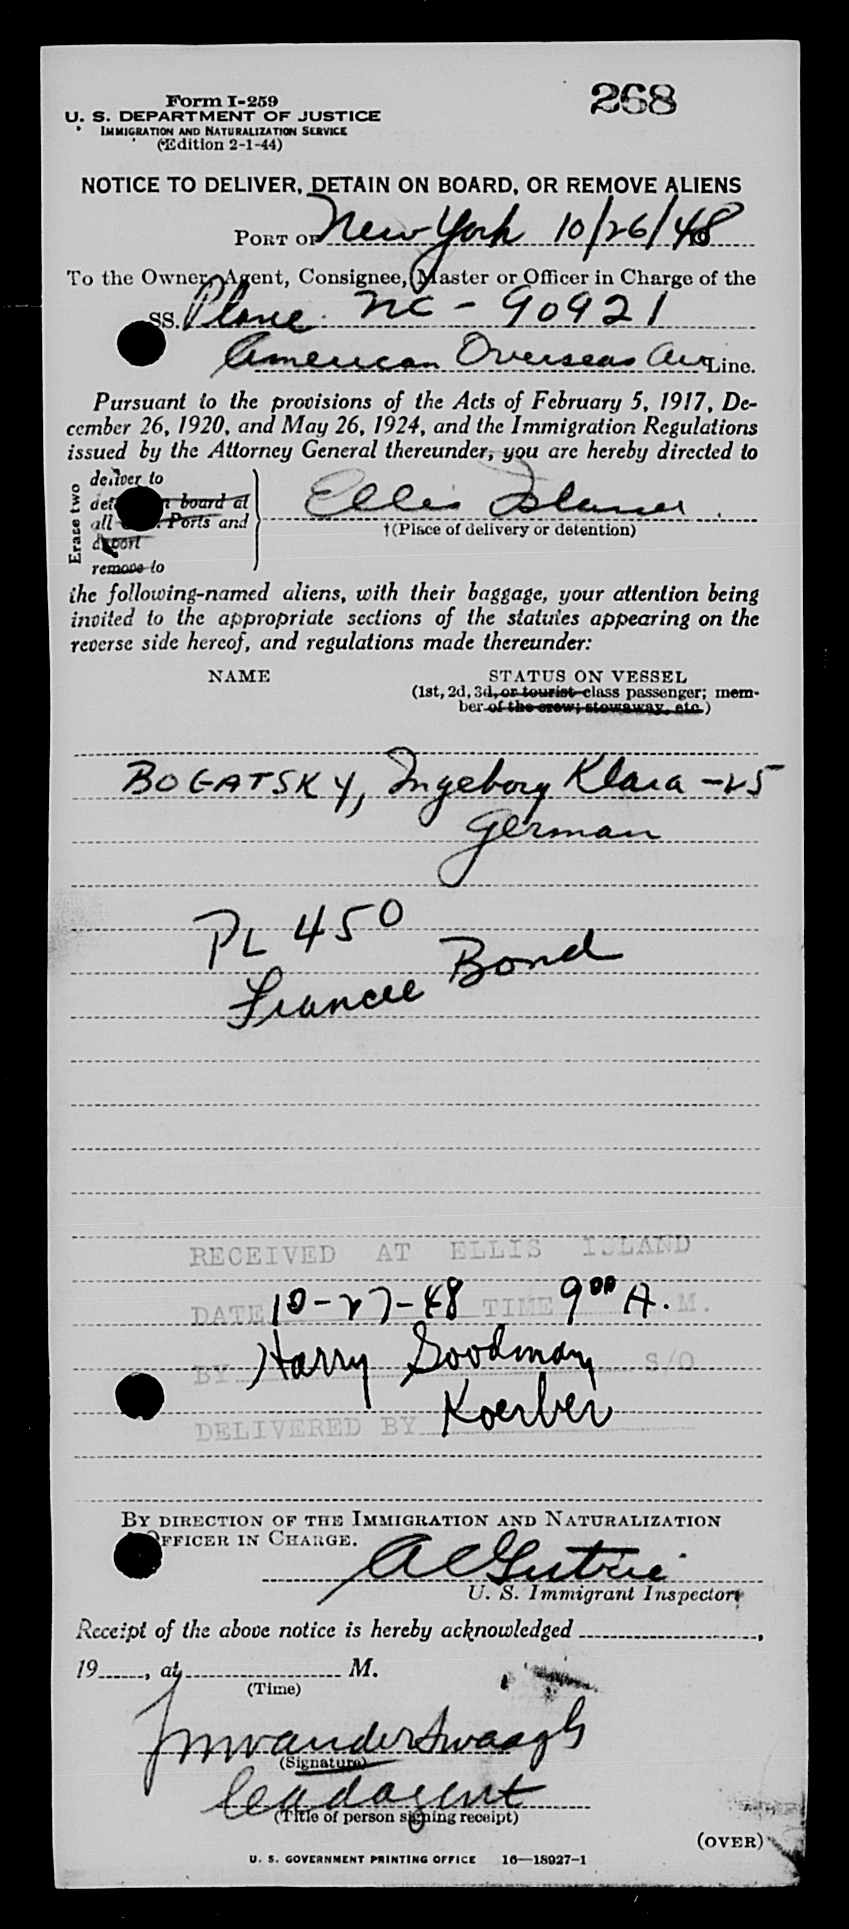 268
Form I-259
U. S. DEPARTMENT OF JUSTICE
IMMIGRATION AND NATURALIZATION SERVICE
(Edition 2-1-44)
NOTICE TO DELIVER, DETAIN ON BOARD, OR REMOVE ALIENS
PORT OF New York 10/26/48
To the Owner, Agent, Consignee, Master or Officer in Charge of the
SS. Plane NC-90921
American Overseas Air Line.
Pursuant to the provisions of the Acts of February 5, 1917, De-
cember 26, 1920, and May 26, 1924, and the Immigration Regulations
issued by the Attorney General thereunder, you are hereby directed to
Erase two
deliver to
board at
all Ports and
deport
remove to
Ellis Island
†(Place of delivery or detention)
the following-named aliens, with their baggage, your attention being
invited to the appropriate sections of the statutes appearing on the
reverse side hereof, and regulations made thereunder:
NAME STATUS ON VESSEL
(1st, 2d, 3d, or tourist class passenger; mem-
ber of the crew; stowaway, etc.)
BOGATSKY, Ingeborg Klara - 25
German
PL 450
Fiancee Bond
RECEIVED AT ELLIS ISLAND
DATE 10-27-48 TIME 9 00 A. M.
BY Harry Goodman S/O
DELIVERED BY Koerber
BY DIRECTION OF THE IMMIGRATION AND NATURALIZATION
OFFICER IN CHARGE.
A C Guthrie
U. S. Immigrant Inspector
Receipt of the above notice is hereby acknowledged ,
19 , at M.
(Time)
(Signature)
agent
(Title of person signing receipt)
(OVER)
U. S. GOVERNMENT PRINTING OFFICE 16—18027-1